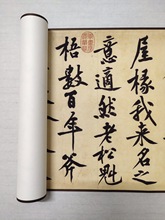 屋椽我來名之
意適然老松魁
梧數百年斧